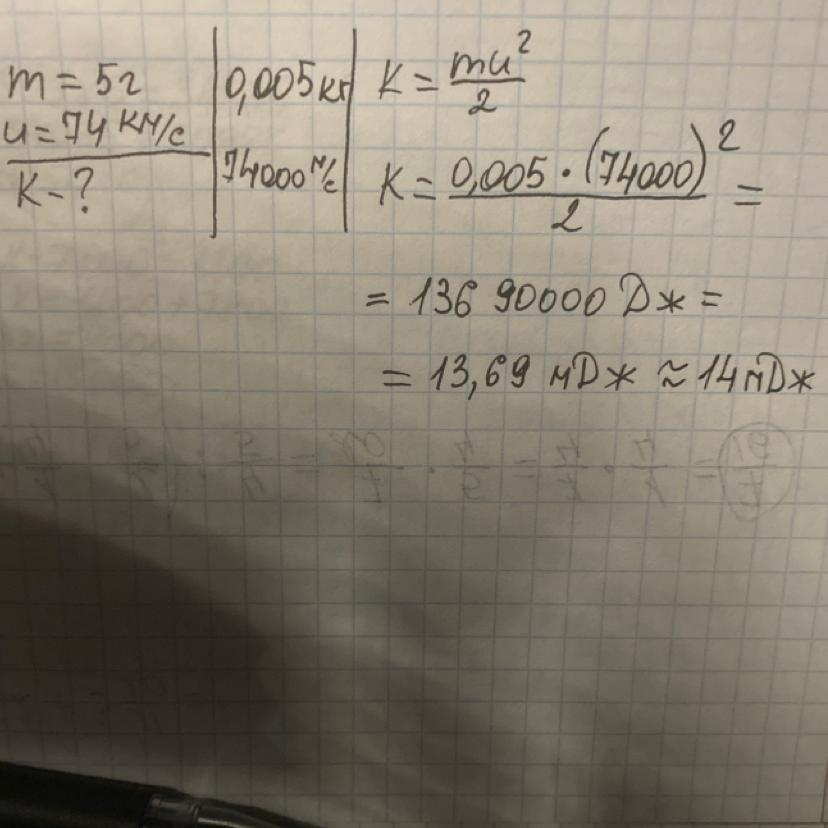 m = 5г
u = 74 км/с
K - ?
0,005 кг
74000 м/с
K = mu²/2
K = 0,005 · (74000)²/2 =
= 136 90000 Dж =
= 13,69 мDж ≈ 14 мDж